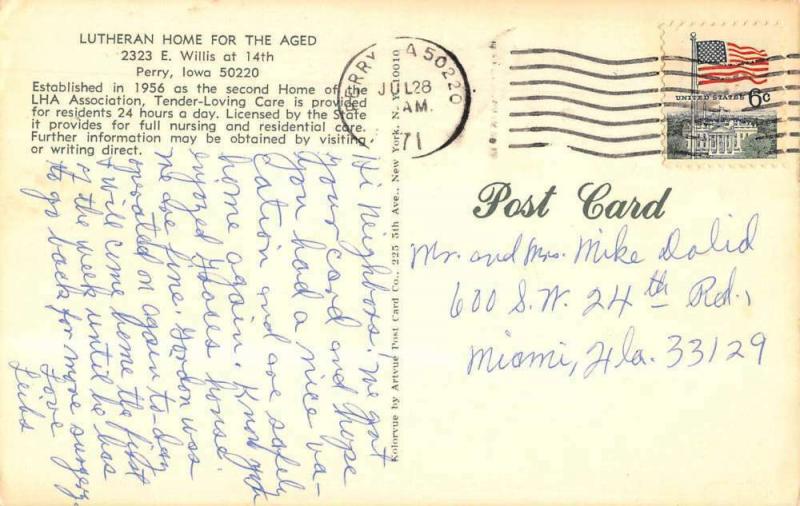 LUTHERAN HOME FOR THE AGED
2323 E. Willis at 14th
Perry, Iowa 50220
Established in 1956 as the second Home of the
LHA Association, Tender-Loving Care is provided
for residents 24 hours a day. Licensed by the State
it provides for full nursing and residential care.
Further information may be obtained by visiting
or writing direct.
PERRY A 50220
JUL 28
AM.
71
UNITED STATES 6c
Kolorvue by Artvue Post Card Co., 225 5th Ave., New York, N. Y. 10010
Post Card
Mr. and Mrs. Mike Dolid
600 S.W. 24th Rd.,
Miami, Fla. 33129
Hi Neighbors! We got
your card and hope
you had a nice va-
cation and are safely
home again. Know you
enjoyed
We are fine. Gordon was
operated on again to-day
& will come home the first
of the week until he has
to go back for more surgery.
Love
Leihs